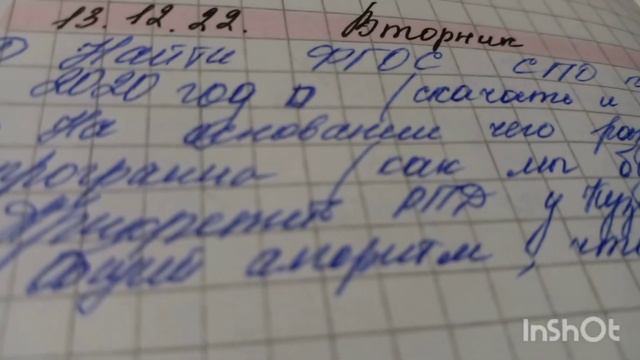 13.12.22. Вторник
Найти ФГОС СПО
2020 год (скачать и
На основании чего раз
программа (как мы б
Прикрепит РПД у Куз
Общий алгоритм, что
InShOt